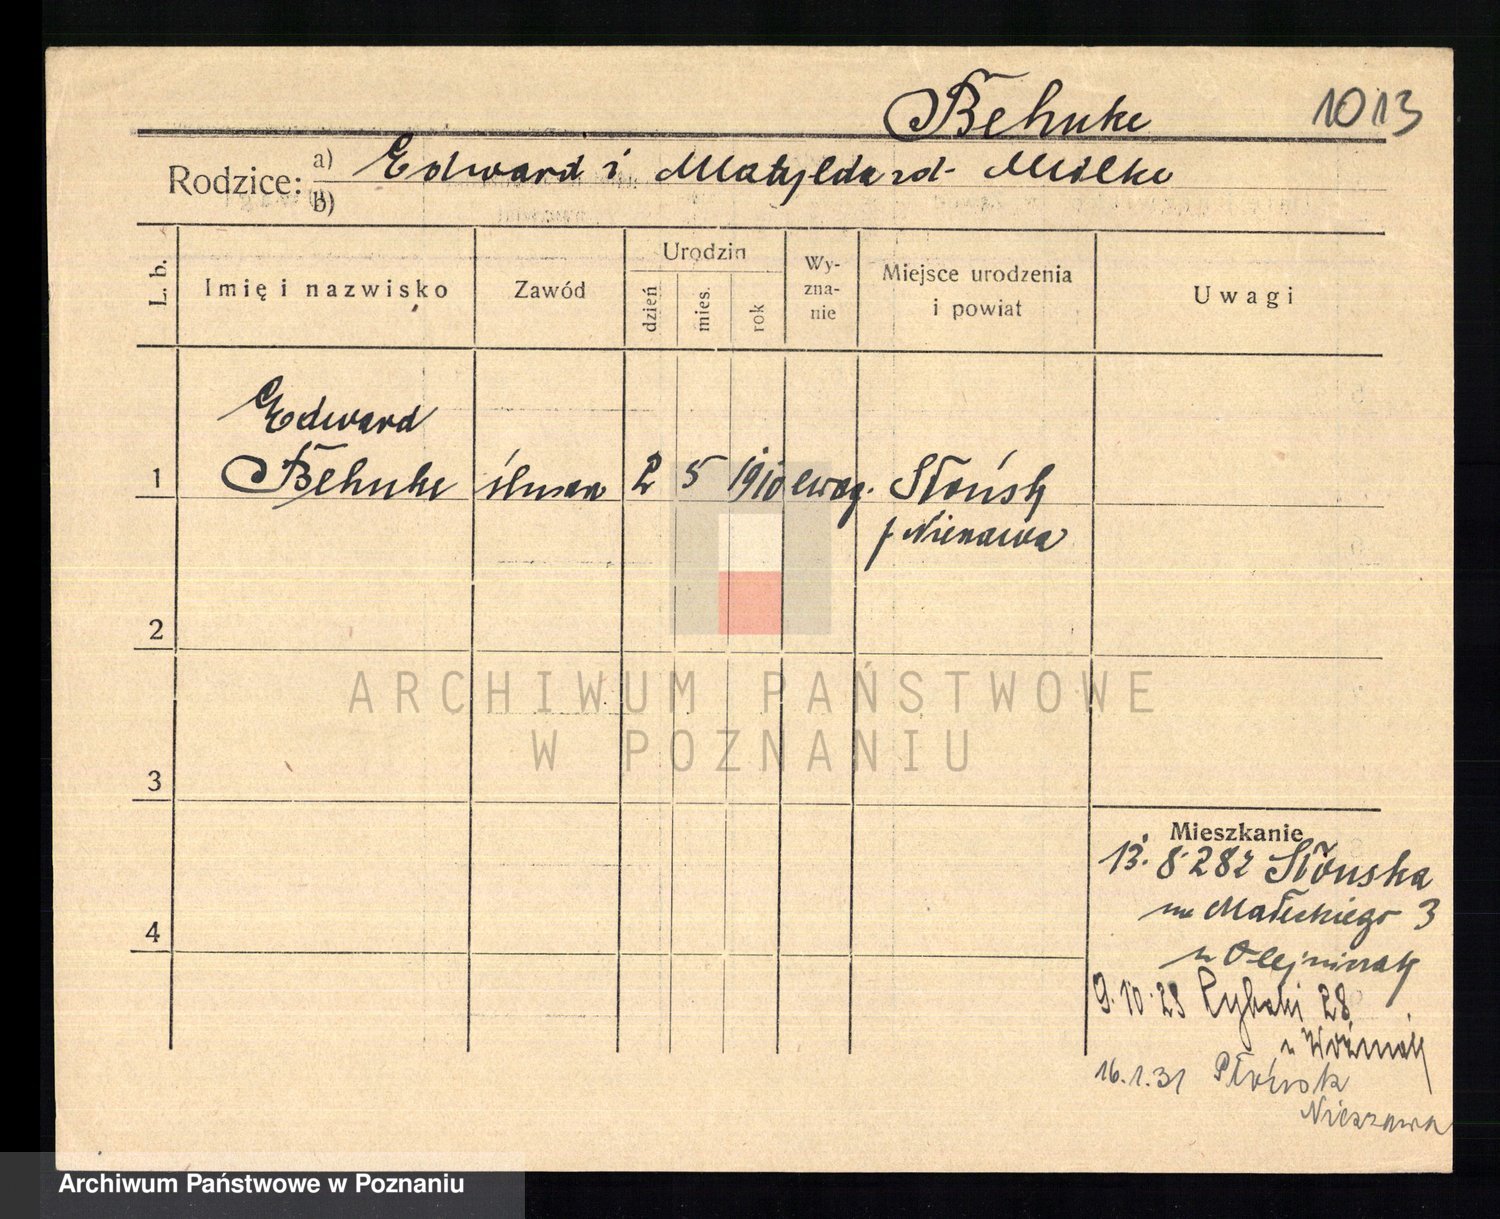 Behnke 1013
Rodzice: a) Edward i Matylda zd. Milke
b)
L. b. Imię i nazwisko Zawód Urodzin dzień mies. rok Wy-zna-nie Miejsce urodzenia i powiat Uwagi
Edward
1 Behnke ślusarz 2 5 1910 ewag. Słońsk
p Nieszawa
2
3
4
Mieszkanie
13.8.28 z Słońska
na Małeckiego 3
u Olejniczak
9.10.28 Rybaki 28
u Woźniak
16.1.31
Nieszawa
ARCHIWUM PAŃSTWOWE
W POZNANIU
Archiwum Państwowe w Poznaniu